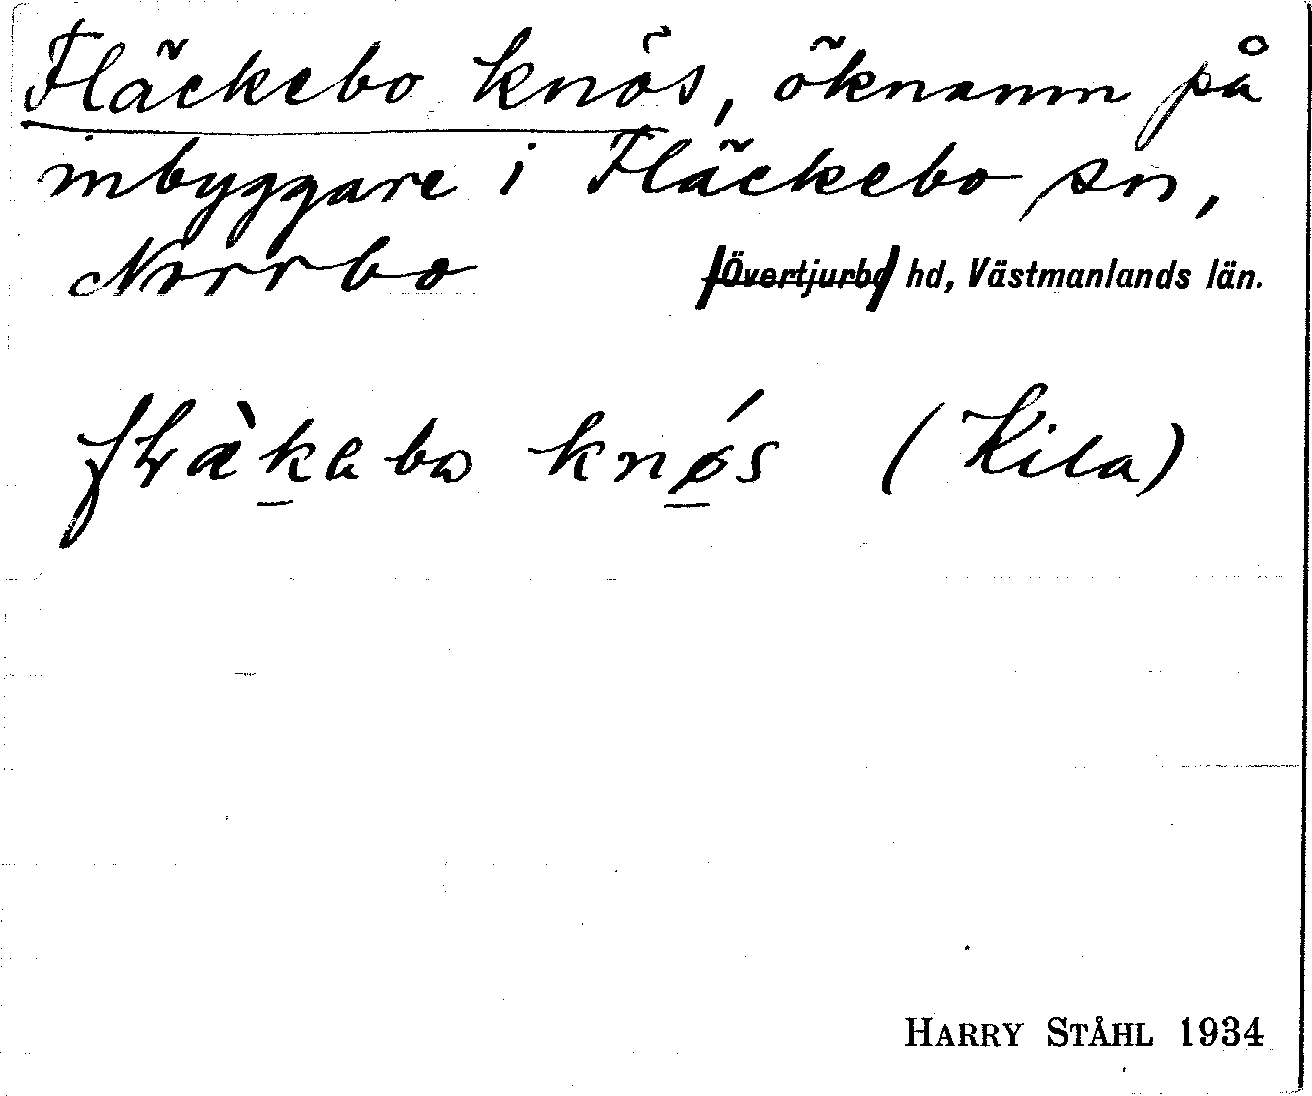 Fläckebo knös, öknamn på
inbyggare i Fläckebo sn,
Norrbo [Övertjurbo] hd, Västmanlands län.
knǿ̲s (Kila)
HARRY STÅHL 1934